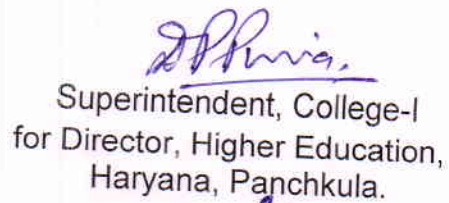 Superintendent, College-I
for Director, Higher Education,
Haryana, Panchkula.